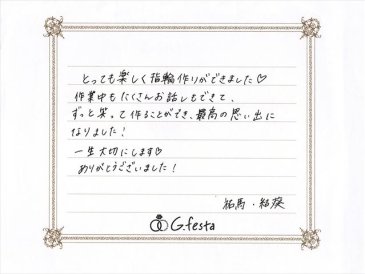 とっても楽しく指輪作りができました♡
作業中もたくさんお話しもできて、
ずっと笑って作ることができ、最高の思い出に
なりました！
一生大切にします♡
ありがとうございました！
祐馬・結葵
G.festa